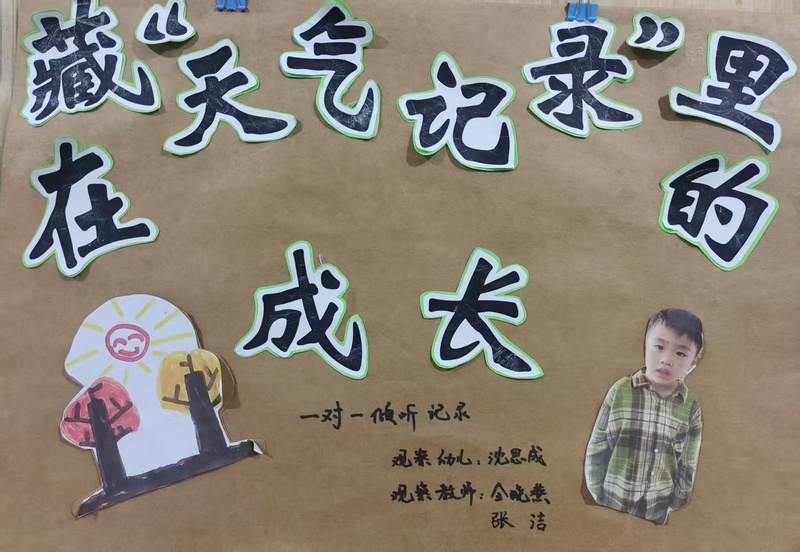 藏“天气记录”里
在的
成长
一对一倾听记录
观察幼儿：沈思成
观察教师：全晓燕
张洁